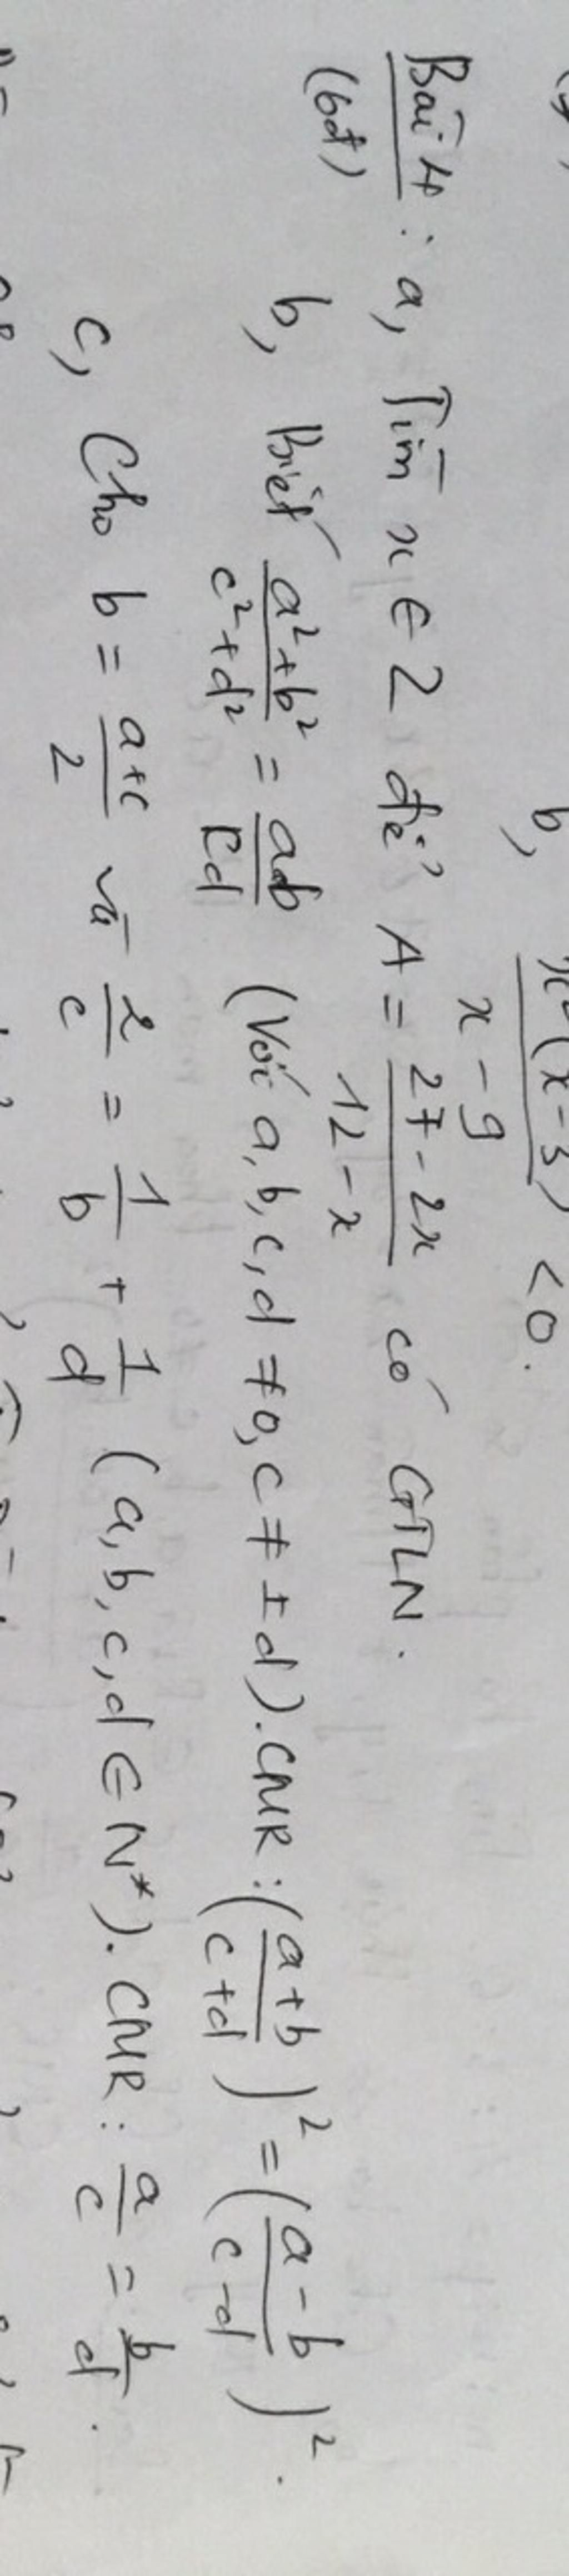 b, x²(x-3)/(x-9) < 0.
Bài 4: a, Tìm x ∈ Z để A = (27-2x)/(12-x) có GTLN.
(6đ)
b, Biết (a²+b²)/(c²+d²) = ab/cd (Với a, b, c, d ≠ 0, c ≠ ±d). CMR: ((a+b)/(c+d))² = ((a-b)/(c-d))².
c, Cho b = (a+c)/2 và 2/c = 1/b + 1/d (a, b, c, d ∈ N*). CMR: a/c = b/d.